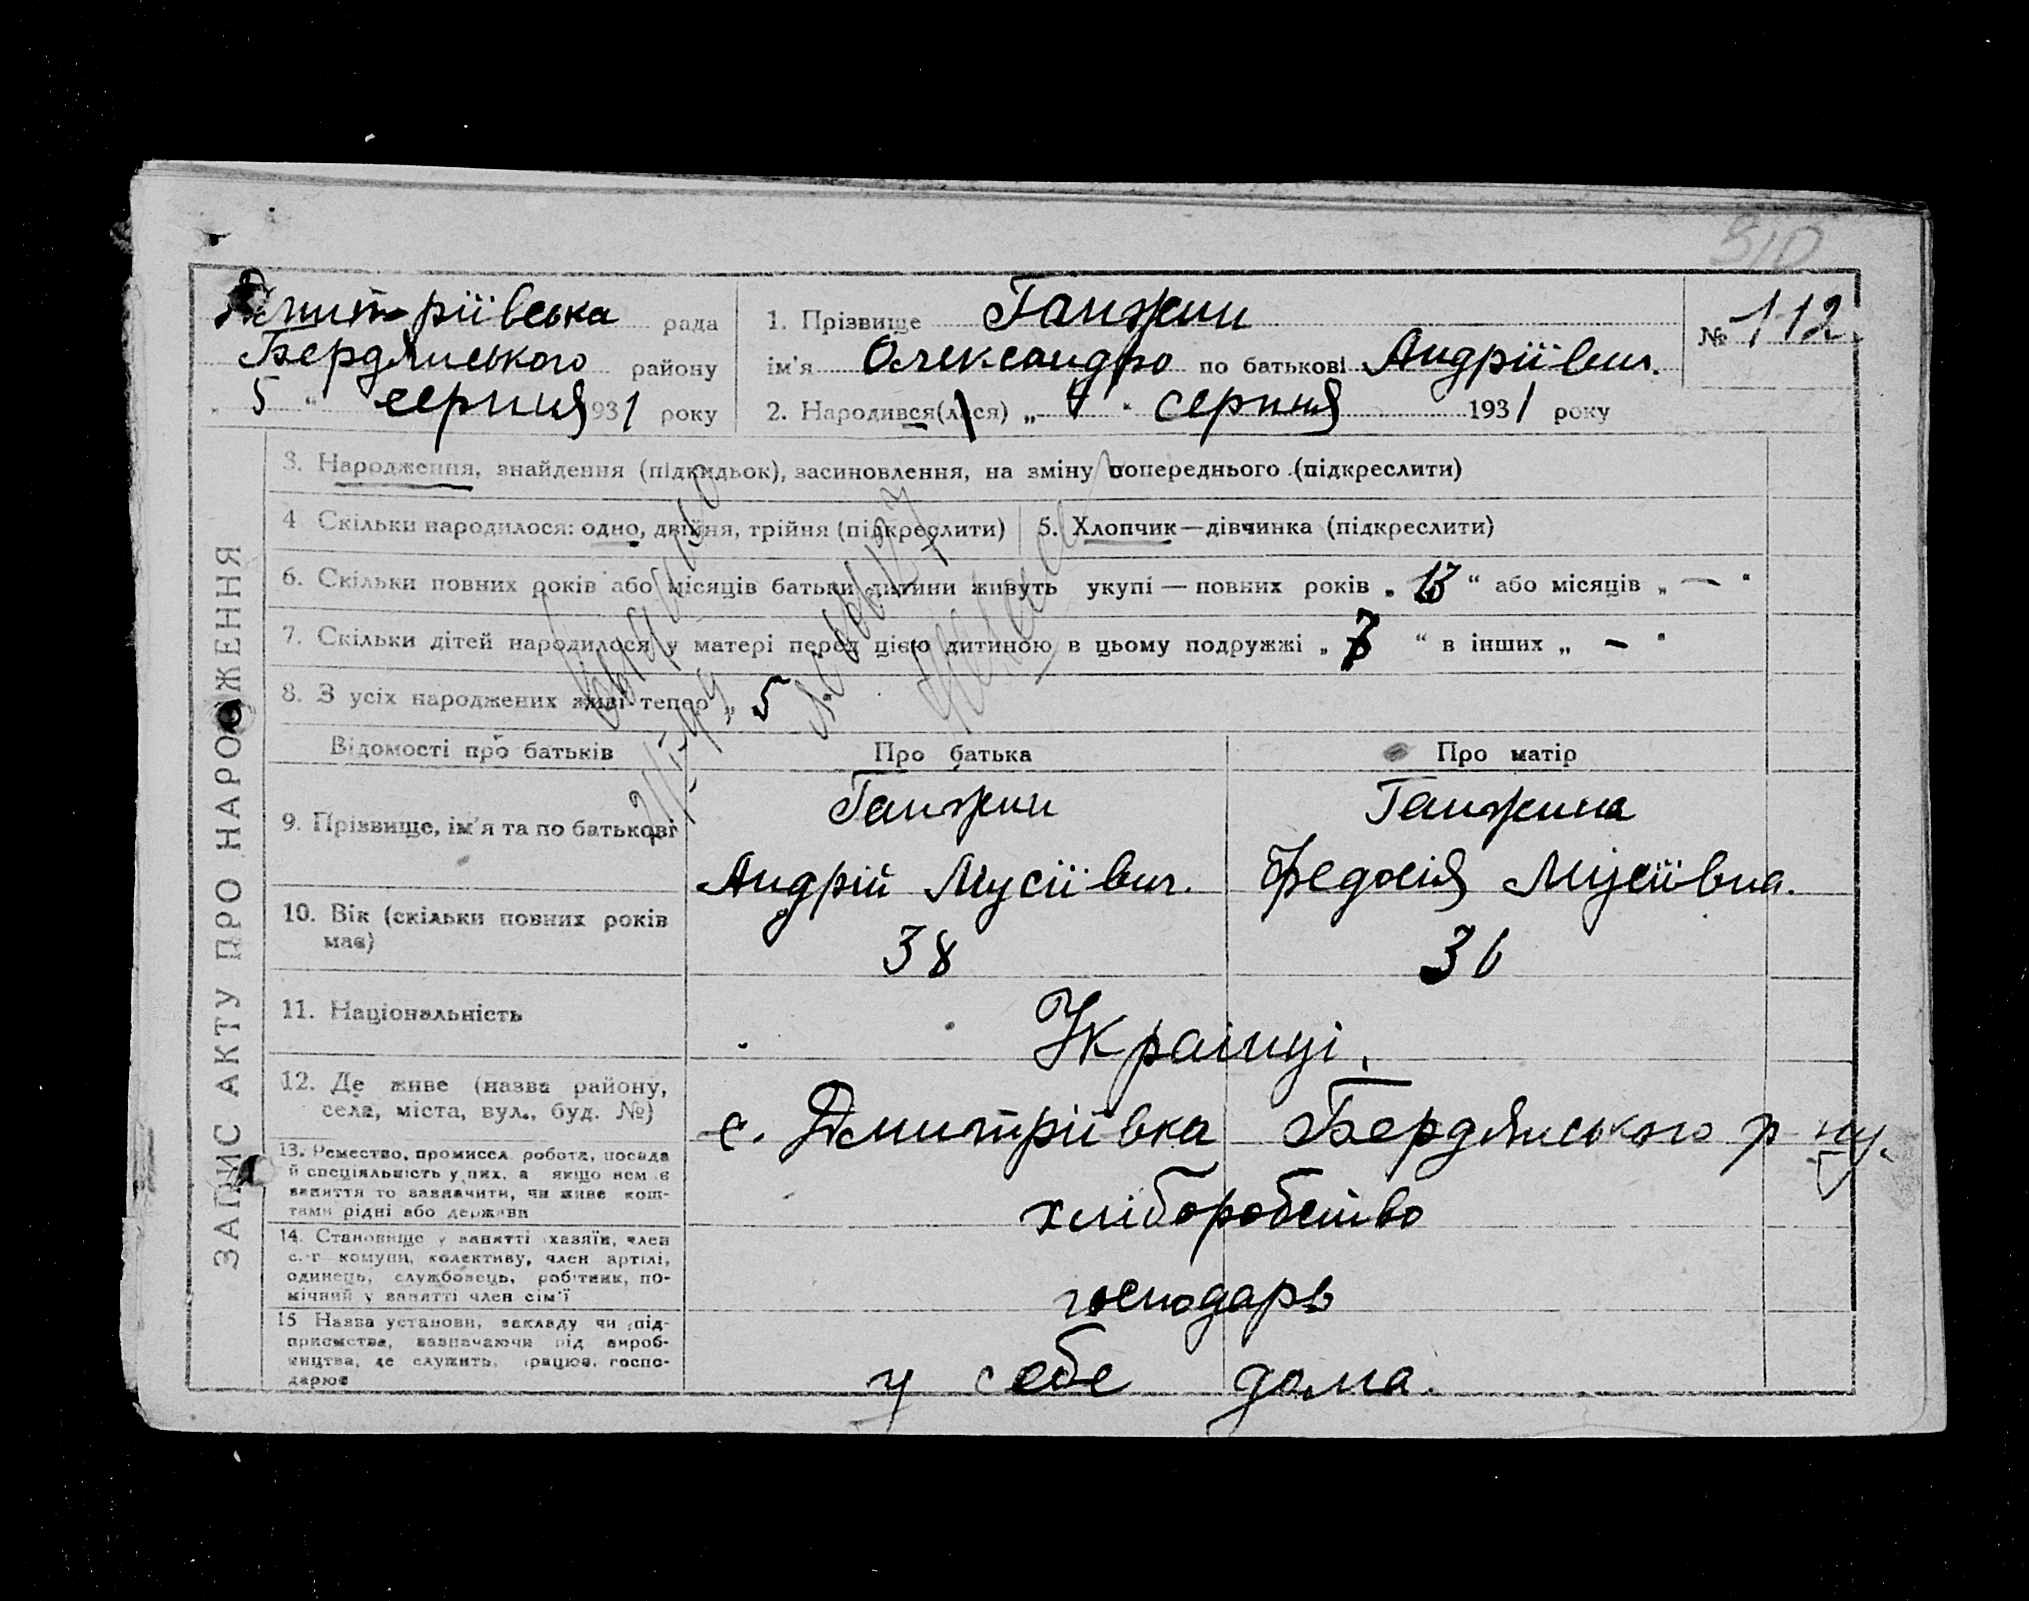 510
Дмитріївська рада
Бердянського району
„ 5 “ серпня 1931 року
1. Прізвище Ганжин
ім'я Олександро по батькові Андріївич.
2. Народився(лася) „ 4 “ серпня 1931 року
№ 112.
ЗАПИС АКТУ ПРО НАРОДЖЕННЯ
3. Народження, знайдення (підкидьок), засиновлення, на зміну попереднього (підкреслити)
4 Скільки народилося: одно, двійня, трійня (підкреслити) 5. Хлопчик—дівчинка (підкреслити)
6. Скільки повних років або місяців батьки дитини живуть укупі — повних років „ 13 “ або місяців „ — “
7. Скільки дітей народилося у матері перед цією дитиною в цьому подружжі „ 7 “ в інших „ — “
8. З усіх народжених живі тепер „ 5
Відомості про батьків Про батька Про матір
9. Прізвище, ім'я та по батькові
Ганжин Ганжина
Андрій Мусіївич. Федосія Мусіївна.
10. Вік (скільки повних років
має)
38 36
11. Національність
Украінці.
12. Де живе (назва району,
села, міста, вул., буд. №)
с. Дмитріївка Бердянського р-ну.
13. Ремество, промисел, робота, посада
й спеціяльність у них, а якщо нема є
заняття то зазначити, чи живе кош-
тами рідні або держави
хліборобство
14. Становище у занятті хазяїн, член
с.-г комуни, колективу, член артілі,
одинець, службовець, робітник, по-
мічний у занятті член сім'ї
господарь
15 Назва установи, закладу чи під-
приємства, зазначаючи рід вироб-
ництва, де служить, працює, госпо-
дарює
у себе дома.